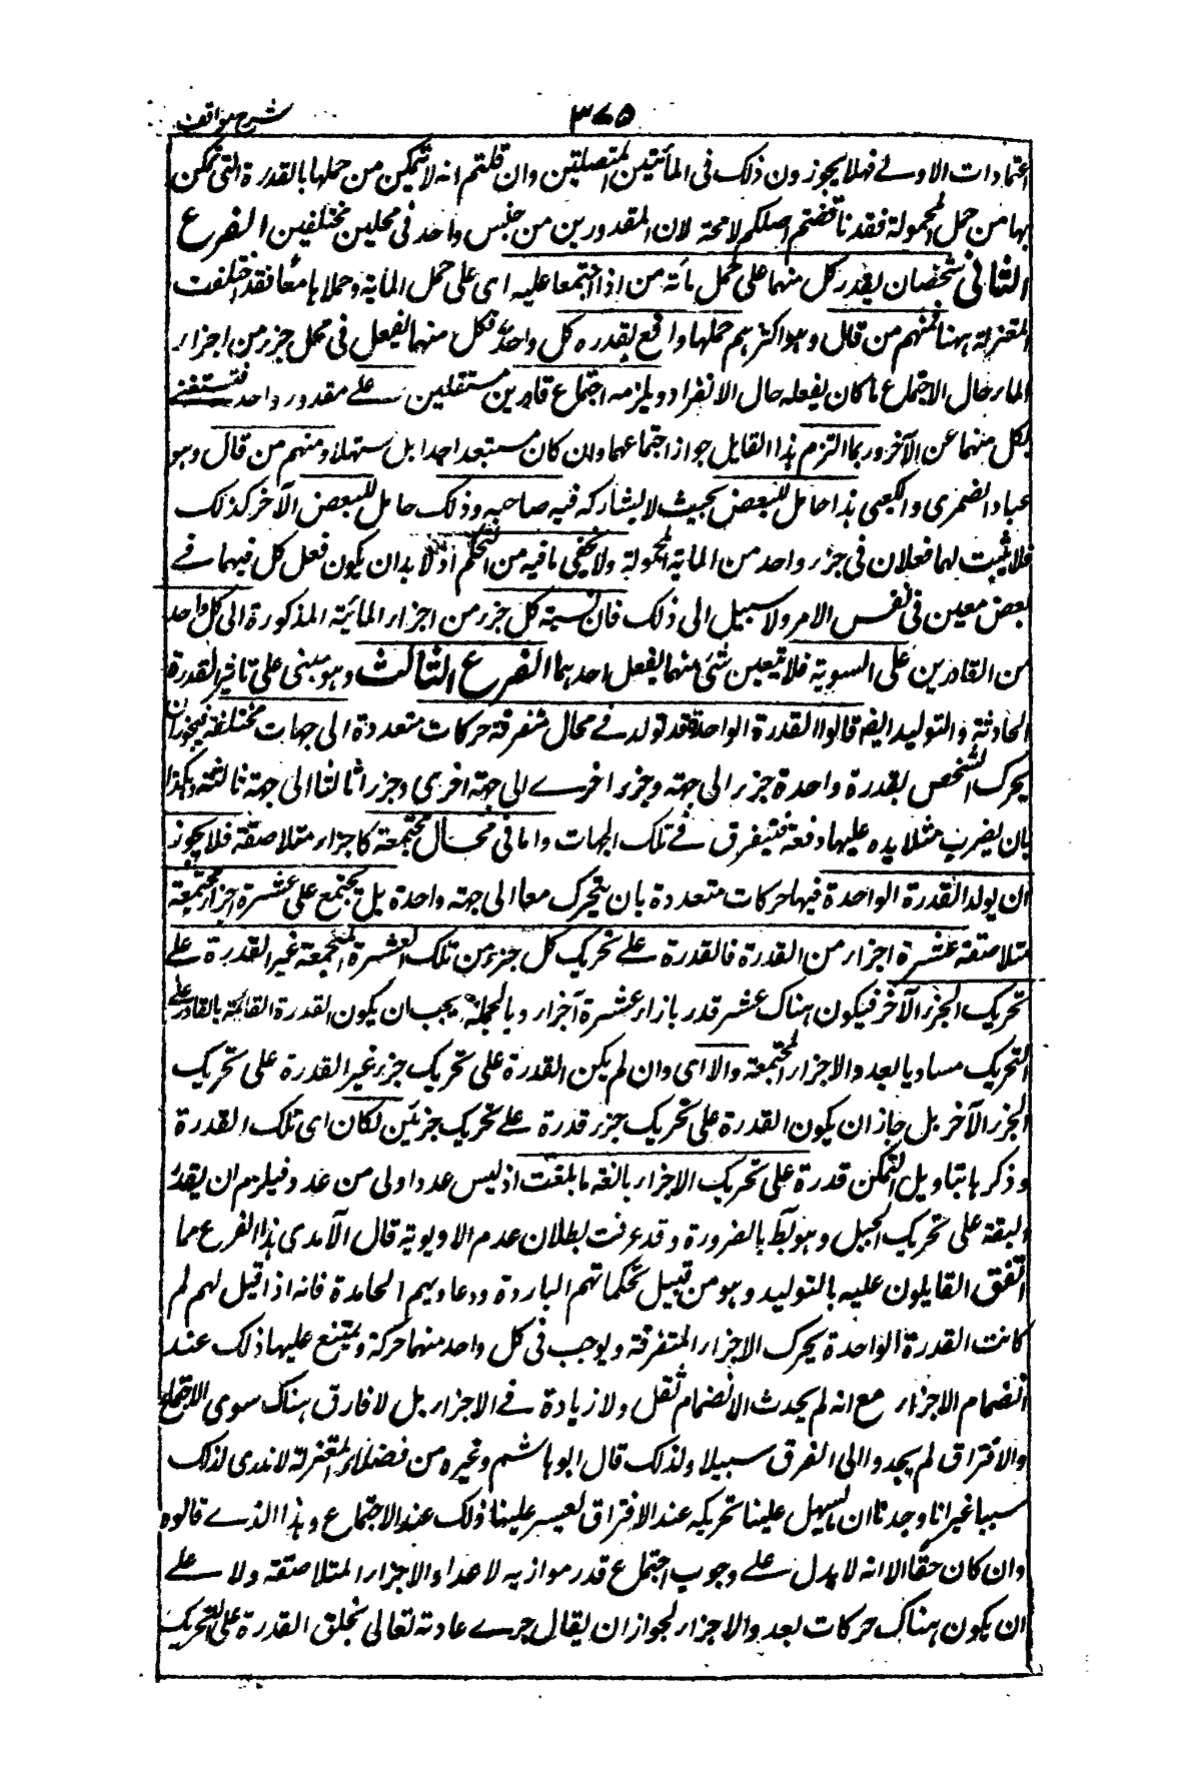 شرح مواقف
٣٦٥
اعتمادات الاولے فهلا يجوزون ذلک فى المأتين المتصلتين وان قلتم انه لا يتمكن من حملها بالقدرة التى تمكن
بها من حمل المحمولة فقد ناقضتم اصلكم لا محة لان المقدورين من جنس واحد فى محلين مختلفين الفرع
الثانى شخصان يقدر كل منهما على حمل مأئة من اذا اجتمعا عليه اى على حمل الماية وحملاها معا فقد اختلفت
المعتزلة ههنا فمنهم من قال وهو اكثرهم حملها واقع بقدرة كل واحد فكل منهما يفعل فى محل جزء من اجزاء
الماء حال الاجتماع ما كان يفعله حال الانفراد ويلزمه اجتماع قادرين مستقلين علے مقدور واحد فتستغنے
بكل منهما عن الآخر وربما التزم هذا القايل جواز اجتماعهما وان كان مستبعدا جدا بل ستهلا ومنهم من قال وهو
عباد الضمرى والكعبى هذا حامل للبعض بحيث لا يشاركه فيه صاحبه وذلک حامل للبعض الآخر كذلک
فلا يثبت لهما فعلان فى جزء واحد من الماية المحمولة ولا يخفى مافيه من التحكم اذ لا بد ان يكون فعل كل فيهما فے
بعض معين فى نفس الامر ولا سبيل الى ذلک فان نسبة كل جزء من اجزاء المائية المذكورة الى كل واحد
من القادرين على السوية فلا يتعين شئ منهما لفعل احدهما الفرع الثالث وهو مبنى على تاثير القدرة
الحادثة والتوليد ايضا قالوا القدرة الواحدة قد تولد فے محال متفرقة حركات متعددة الى جهات مختلفة فيجوز ان
يحرک الشخص بقدرة واحدة جزء الى جهة وجزء اخرے الى جهة اخرى وجزاء ثالثا الى جهة ثالثة وهكذا
بان يضرب مثلا يده عليها دفعة فتيفرق فے تلک الجهات واما فى محال مجتمعة كاجزاء متلاصقة فلا يجوز
ان يولد القدرة الواحدة فيها حركات متعددة بان يتحرک معا الى جهة واحدة بل يجتمع على عشرة اجزاء مجتمعة
متلاصقة عشرة اجزاء من القدرة فالقدرة علے تحريک كل جزء من تلک العشرة المجتمعة غير القدرة علے
تحريک الجزء الآخر فيكون هناک عشر قدر بازاء عشرة آجزاء وبالجملة يجب ان يكون القدرة القائمة بالقادر علے
التحريک مساويا لعدد الاجزاء المجتمعة والا اى وان لم يكن القدرة على تحريک جزء غير القدرة على تحريک
الجزء الآخر بل جاز ان يكون القدرة على تحريک جزء قدرة علے تحريک جزئين لكان اى تلک القدرة
وذكرها بتاويل التمكن قدرة على تحريک الاجزاء بالغة ما بلغت اذ ليس عدد اولى من عدد فيلزم ان يقدر
البقة على تحريک الجبل وهو بط بالضرورة وقد عرفت بطلان عدم الاولوية قال الآمدى هذا الفرع مما
اتفق القايلون عليه بالتوليد وهو من قبيل تحكماتهم الباردة ودعاويهم الجامدة فانه اذا قيل لهم لم
كانت القدرة الواحدة يحرک الاجزاء المتفرقة ويوجب فى كل واحد منهما حركة ويمتنع عليها ذلک عند
انضمام الاجزاء مع انه لم يحدث الانضمام ثقل ولا زيادة فے الاجزاء بل لا فارق هناک سوى الاجتماع
والافتراق لم يجدوا الى الفرق سبيلا ولذلک قال ابو هاشم وغيره من فضلاء المعتزلة لا ندرى لذلک
سببا غير انا وجدنا ان ما يسهل علينا تحريكه عند الافتراق يعسر علينا ذلک عند الاجتماع وهذا الذے قالوه
وان كان حقا الا انه لا يدل علے وجوب اجتماع قدر موازية لاعداد الاجزاء المتلاصقة ولا علے
ان يكون هناک حركات بعدد الاجزاء لجواز ان يقال جرے عادته تعالى بخلق القدرة على التحريک